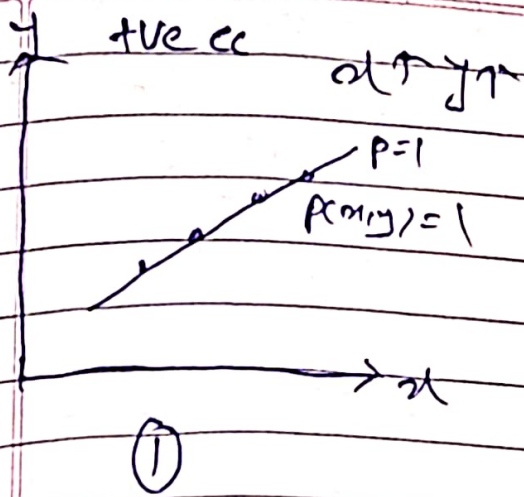 y +ve cc
x↑ y↑
P=1
P(x,y)=1
x
1